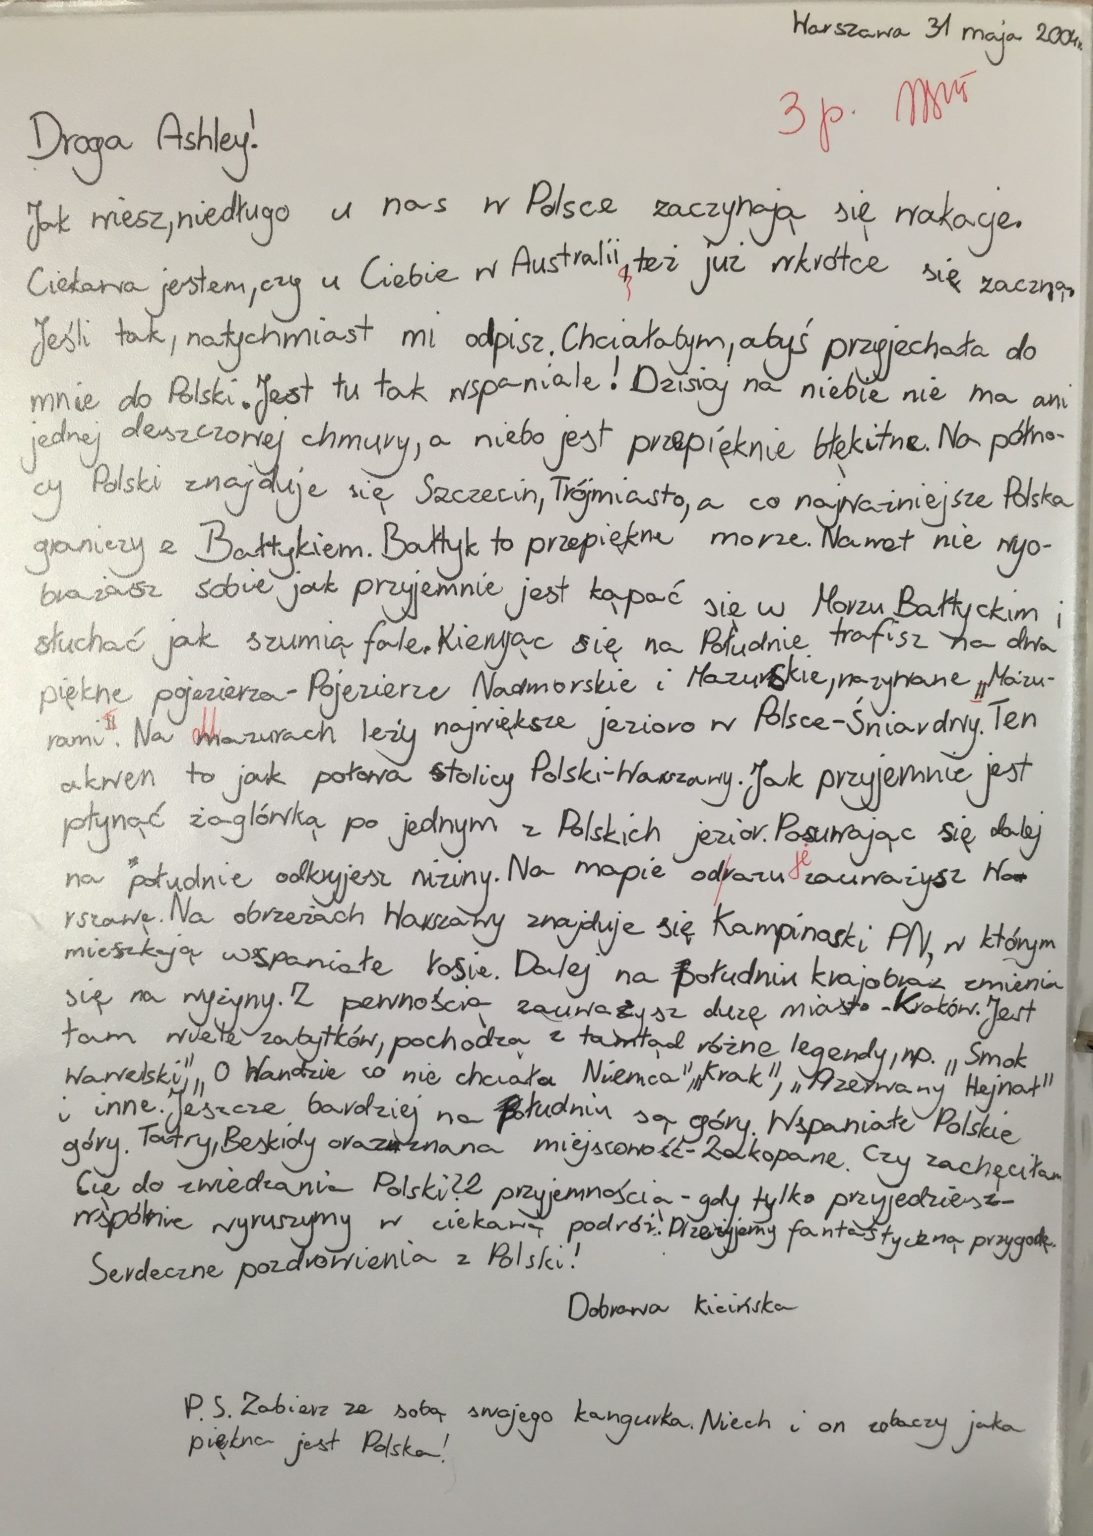 Warszawa 31 maja 2004r.
3 p.
Droga Ashley!
Jak wiesz, niedługo u nas w Polsce zaczynają się wakacje.
Ciekawa jestem, czy u Ciebie w Australii, też już wkrótce się zaczną.
Jeśli tak, natychmiast mi odpisz. Chciałabym, abyś przyjechała do
mnie do Polski. Jest tu tak wspaniale! Dzisiaj na niebie nie ma ani
jednej deszczowej chmury, a niebo jest przepięknie błękitne. Na półno-
cy Polski znajduje się Szczecin, Trójmiasto, a co najważniejsze Polska
graniczy z Bałtykiem. Bałtyk to przepiękne morze. Nawet nie wyo-
brażasz sobie jak przyjemnie jest kąpać się w Morzu Bałtyckim i
słuchać jak szumią fale. Kierując się na Południe trafisz na dwa
piękne pojezierza - Pojezierze Nadmorskie i Mazurskie, nazywane „Mazu-
rami". Na mazurach leży największe jezioro w Polsce - Śniardwy. Ten
akwen to jak połowa stolicy Polski - Warszawy. Jak przyjemnie jest
płynąć żaglówką po jednym z Polskich jezior. Posuwając się dalej
na południe odkryjesz niziny. Na mapie odrazu zauważysz Wa-
rszawę. Na obrzeżach Warszawy znajduje się Kampinoski PN, w którym
mieszkają wspaniałe łosie. Dalej na Południu krajobraz zmienia
się na wyżyny. Z pewnością zauważysz duże miasto - Kraków. Jest
tam wiele zabytków, pochodzą z tamtąd różne legendy, np. „Smok
Wawelski", „O Wandzie co nie chciała Niemca", „Krak", „Przerwany Hejnał"
i inne. Jeszcze bardziej na Południu są góry. Wspaniałe Polskie
góry. Tatry, Beskidy oraz znana miejscowość - Zakopane. Czy zachęciłam
Cię do zwiedzania Polski? Z przyjemnością - gdy tylko przyjedziesz -
wspólnie wyruszymy w ciekawą podróż! Przeżyjemy fantastyczną przygodę.
Serdeczne pozdrowienia z Polski!
Dobrawa Kicińska
P.S. Zabierz ze sobą swojego kangurka. Niech i on zobaczy jaka
piękna jest Polska!